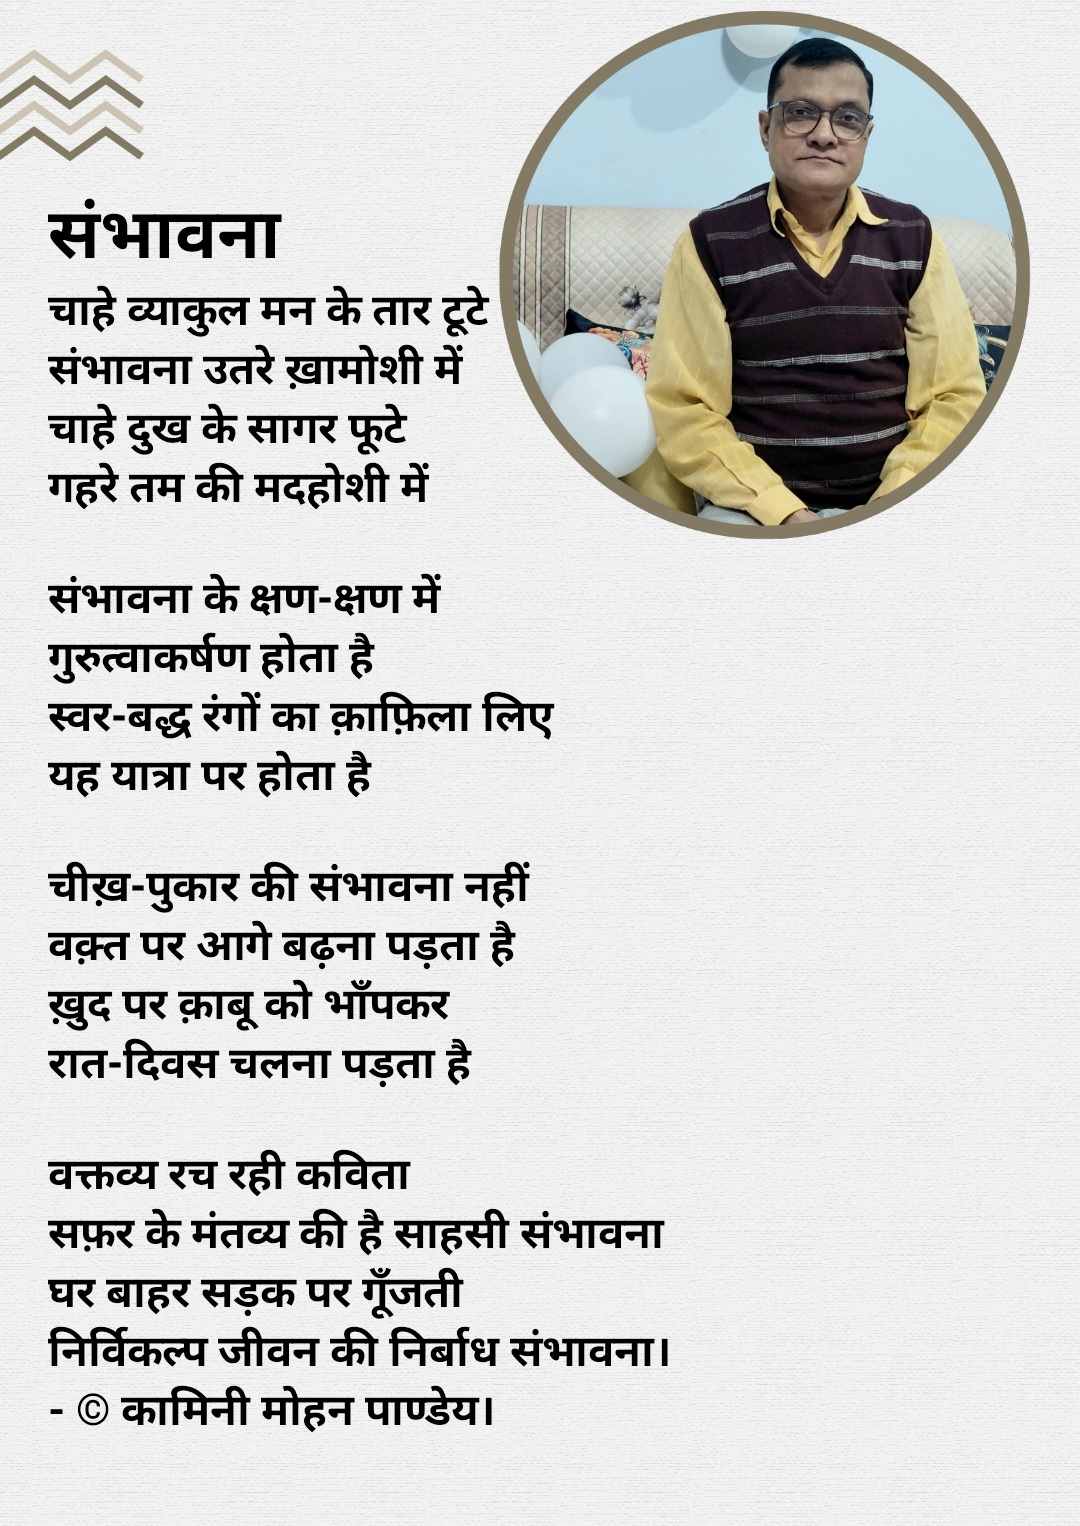 संभावना
चाहे व्याकुल मन के तार टूटे
संभावना उतरे ख़ामोशी में
चाहे दुख के सागर फूटे
गहरे तम की मदहोशी में
संभावना के क्षण-क्षण में
गुरुत्वाकर्षण होता है
स्वर-बद्ध रंगों का क़ाफ़िला लिए
यह यात्रा पर होता है
चीख़-पुकार की संभावना नहीं
वक़्त पर आगे बढ़ना पड़ता है
ख़ुद पर क़ाबू को भाँपकर
रात-दिवस चलना पड़ता है
वक्तव्य रच रही कविता
सफ़र के मंतव्य की है साहसी संभावना
घर बाहर सड़क पर गूँजती
निर्विकल्प जीवन की निर्बाध संभावना।
- © कामिनी मोहन पाण्डेय।